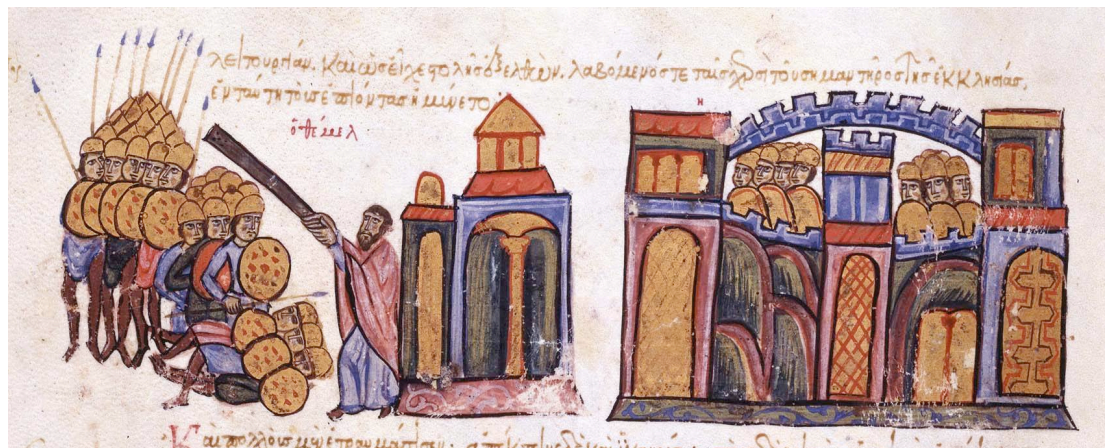 λειτουργίαν. καὶ ὡς εἶχε στολῆς ἐξελθών, λαβόμενός τε ταῖς χερσὶ τοῦ σημαντῆρος τῆς ἐκκλησίας,
ἐν ταύτη τοὺς ἐπιόντας ἠμύνετο
ὁ θέμελ
Καὶ πολλοὺς μὲν ἐτραυμάτισεν